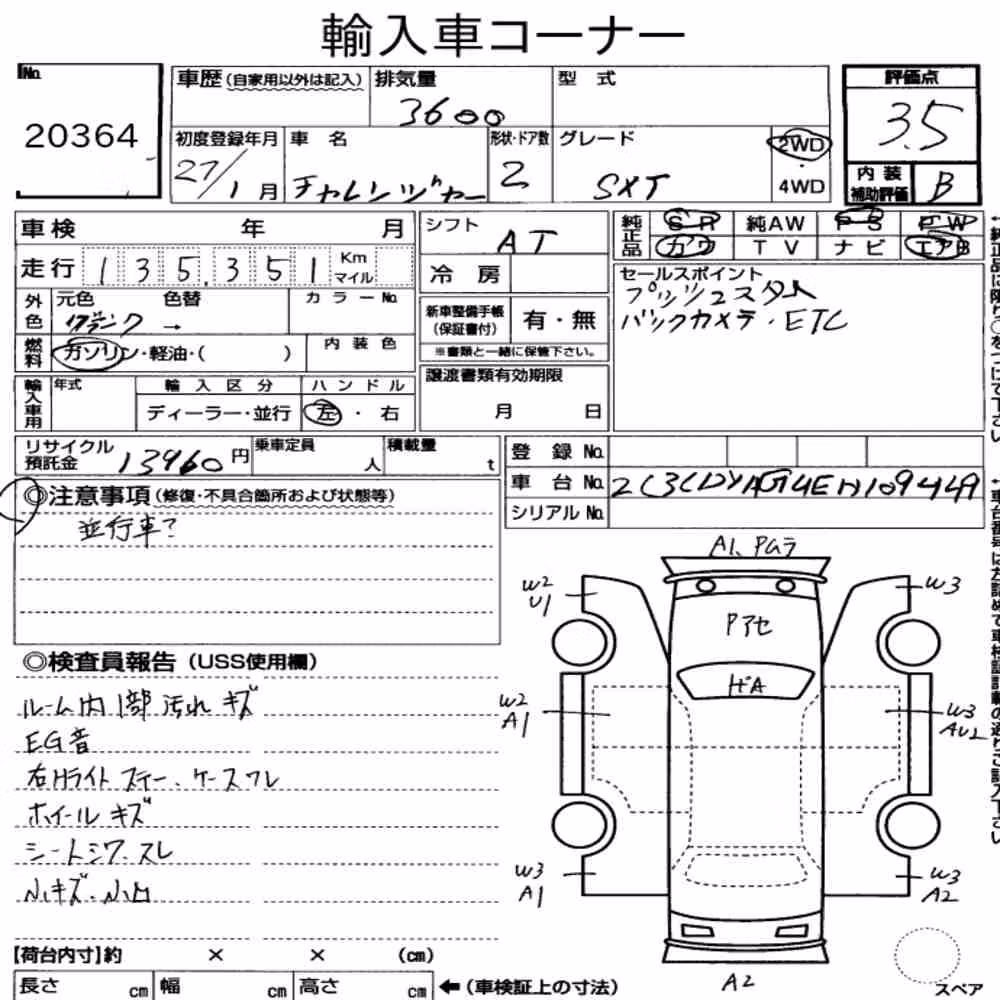 輸入車コーナー
No.
20364
車歴 (自家用以外は記入)
排気量
3600
型 式
評価点
3.5
初度登録年月
27/1月
車 名
チャレンジャー
形状・ドア数
2
グレード
SXT
2WD
・
4WD
内 装
補助評価
B
車検 年 月
シフト
AT
純正品
SR 純AW PS FW
カワ TV ナビ エアB
走行 135,351 Km
マイル
冷 房
セールスポイント
プッシュスタート
バックカメラ・ETC
外色
元色
色替
カラーNo.
→
新車整備手帳
(保証書付)
有・無
※書類と一緒に保管下さい。
燃料
ガソリン・軽油・( )
内 装 色
輸入車用
年式
輸 入 区 分
ハ ン ド ル
ディーラー・並行
左・右
譲渡書類有効期限
月 日
リサイクル
預託金
13960円
乗車定員
人
積載量
t
登 録 No.
車 台 No.
シリアル No.
◎注意事項 (修復・不具合箇所および状態等)
並行車?
A1、PMラ
W2
U1
W3
Pアセ
ガA
W2
A1
W3
AU2
W3
A1
W3
A2
A2
スペア
◎検査員報告 (USS使用欄)
ルーム内1部汚れ キズ
EG音
右Hライト ステー、ケースワレ
ホイールキズ
シートシワ、スレ
小キズ、小凹
【荷台内寸】約 × × (cm)
長さ cm 幅 cm 高さ cm ←(車検証上の寸法)